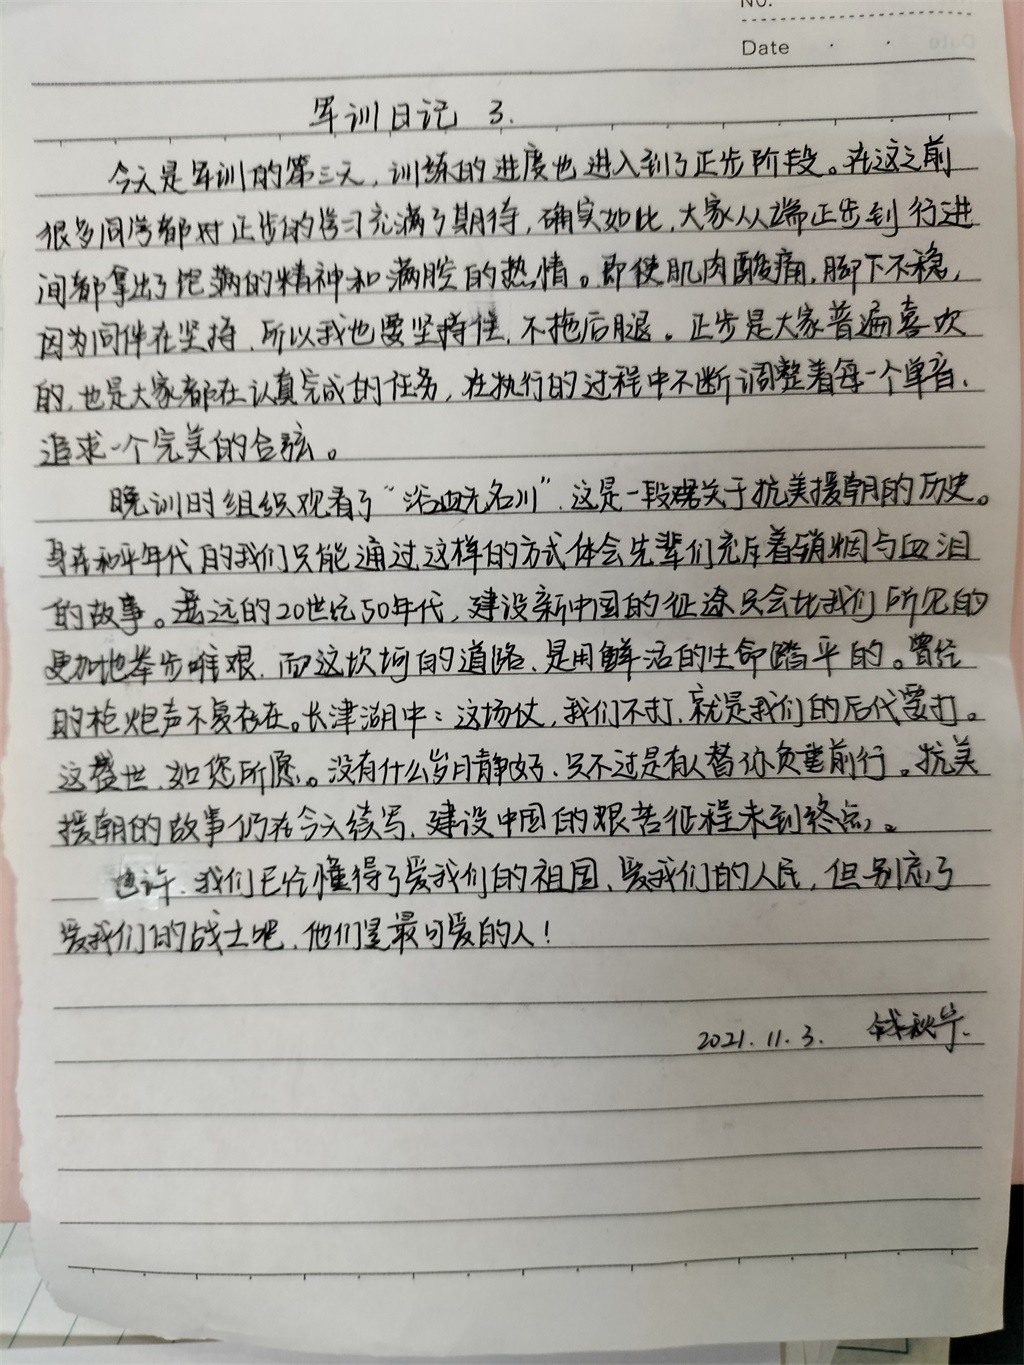 No.
Date
军训日记 3.
今天是军训的第三天，训练的进度也进入到了正步阶段。在这之前
很多同学都对正步的学习充满了期待，确实如此，大家从端正步到行进
间都拿出了饱满的精神和满腔的热情。即使肌肉酸痛，脚下不稳，
因为同伴在坚持，所以我也要坚持住，不拖后腿。正步是大家普遍喜欢
的，也是大家都在认真完成的任务，在执行的过程中不断调整着每一个单音，
追求一个完美的合弦。
晚训时组织观看了“浴血无名川”，这是一段关于抗美援朝的历史。
身在和平年代的我们只能通过这样的方式体会先辈们充斥着硝烟与血泪
的故事。遥远的20世纪50年代，建设新中国的征途只会比我们所见的
更加地举步唯艰，而这坎坷的道路，是用鲜活的生命踏平的。曾经
的枪炮声不复存在。长津湖中：这场仗，我们不打，就是我们的后代要打。
这盛世，如您所愿。没有什么岁月静好，只不过是有人替你负重前行。抗美
援朝的故事仍在今天续写，建设中国的艰苦征程未到终点。
也许，我们已经懂得了爱我们的祖国、爱我们的人民，但别忘了
爱我们的战士吧，他们是最可爱的人！
2021.11.3. 钱秋